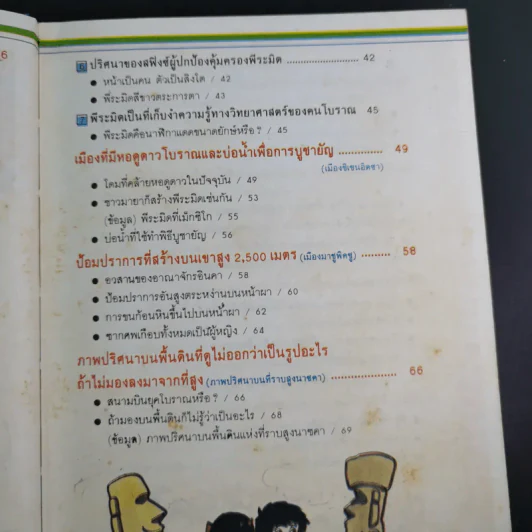 6
6 ปริศนาของสฟิงซ์ผู้ปกป้องคุ้มครองพีระมิด ........................... 42
● หน้าเป็นคน ตัวเป็นสิงโต / 42
● พีระมิดสีขาวตระการตา / 43
7 พีระมิดเป็นที่เก็บงำความรู้ทางวิทยาศาสตร์ของคนโบราณ 45
● พีระมิดคือนาฬิกาแดดขนาดยักษ์หรือ? / 45
เมืองที่มีหอดูดาวโบราณและบ่อน้ำเพื่อการบูชายัญ ........... 49
(เมืองชิเชนอิตซา)
● โดมที่คล้ายหอดูดาวในปัจจุบัน / 49
● ชาวมายาก็สร้างพีระมิดเช่นกัน / 53
(ข้อมูล) พีระมิดที่เม็กซิโก / 55
● บ่อน้ำที่ใช้ทำพิธีบูชายัญ / 56
ป้อมปราการที่สร้างบนเขาสูง 2,500 เมตร (เมืองมาชูพิคชู) ......... 58
● อวสานของอาณาจักรอินคา / 58
● ป้อมปราการอันสูงตระหง่านบนหน้าผา / 60
● การขนก้อนหินขึ้นไปบนหน้าผา / 62
● ซากศพเกือบทั้งหมดเป็นผู้หญิง / 64
ภาพปริศนาบนพื้นดินที่ดูไม่ออกว่าเป็นรูปอะไร
ถ้าไม่มองลงมาจากที่สูง (ภาพปริศนาบนที่ราบสูงนาซคา) ................... 66
● สนามบินยุคโบราณหรือ? / 66
● ถ้ามองบนพื้นดินก็ไม่รู้ว่าเป็นอะไร / 68
(ข้อมูล) ภาพปริศนาบนพื้นดินแห่งที่ราบสูงนาซคา / 69